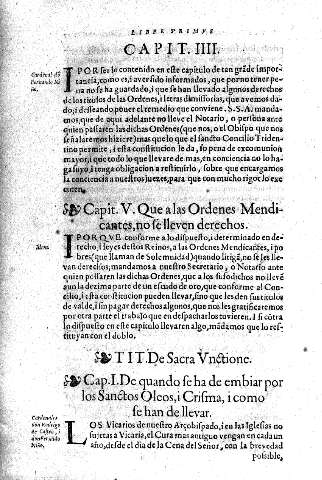 LIBER PRIMVS
CAPIT. IIII.
Cardenal dõ
Fernando Ni
ño.
POR ser lo contenido en este capitulo de tan grãde impor-
tancia, como es, i aver sido informados, que por no tener pe-
na no se ha guardado, i que se han llevado algunos derechos
de los titulos de las Ordenes, i letras dimissorias, que avemos da-
do, i desseando poner el remedio que conviene. S.S.A. manda-
mos, que de aqui adelante no lleve el Notario, o persona ante
quien passaren las dichas Ordenes (que nos, o el Obispo que nos
señalaremos hiziere) mas que lo que el sancto Concilio Triden-
tino permite, i esta constitucion le da, so pena de excomunion
mayor, i que todo lo que llevare de mas, en conciencia no lo ha-
ga suyo, i tenga obligacion a restituirlo, sobre que encargamos
la conciencia a nuestros juezes, para que con mucho rigor lo exe
cuten.
Capit. V. Que a las Ordenes Mendi-
cantes, no se lleven derechos.
Idem.
IPORQVE conforme a lo dispuesto, i determinado en de-
recho, i leyes destos Reinos, a las Ordenes Mendicantes, i po
bres (que llaman de Solemnidad) quando litigã, no se les lle-
van derechos, mandamos a nuestro Secretario, o Notario ante
quien passaren las dichas Ordenes, que a los susodichos no lleve
aun la dezima parte de un escudo de oro, que conforme al Con-
cilio, i esta constitucion pueden llevar, sino que les den sus titulos
de valde, i sin pagar derechos algunos, que nos les gratificaremos
por otra parte el trabajo que en despacharlos tuvieren. I si cõtra
lo dispuesto en este capitulo llevaren algo, mãdamos que lo res-
tituyan con el doblo.
TIT. De Sacra Vnctione.
Cap. I. De quando se ha de embiar por
los Sanctos Oleos, i Crisma, i como
se han de llevar.
Cardenales
don Rodrigo
de Castro, i
don Fernando
Niño.
LOS Vicarios de nuestro Arçobispado, i en las Iglesias no
sujetas a Vicaria, el Cura mas antiguo vengan en cada un
año, desde el dia de la Cena del Señor, con la brevedad
possible,